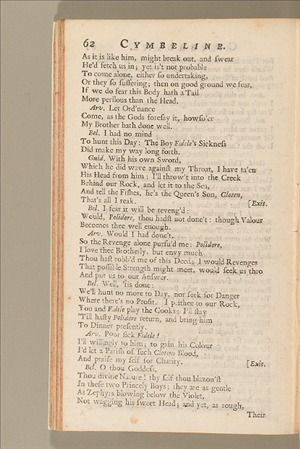 62 CYMBELINE.
As it is like him, might break out, and swear
He'd fetch us in; yet is't not probable
To come alone, either so undertaking,
Or they so suffering; then on good ground we fear,
If we do fear this Body hath a Tail
More perilous than the Head.
Arv. Let Ord'nance
Come, as the Gods foresay it, howso'er
My Brother hath done well.
Bel. I had no mind
To hunt this Day: The Boy Fidele's Sickness
Did make my way long forth.
Guid. With his own Sword,
Which he did wave against my Throat, I have ta'en
His Head from him: I'll throw't into the Creek
Behind our Rock, and let it to the Sea,
And tell the Fishes, he's the Queen's Son, Cloten,
That's all I reak. [Exit.
Bel. I fear it will be reveng'd:
Would, Polidore, thou hadst not done't: though Valour
Becomes thee well enough.
Arv. Would I had done't,
So the Revenge alone pursu'd me: Polidore,
I love thee Brotherly, but envy much
Thou hast robb'd me of this Deed; I would Revenges
That possible Strength might meet, would seek us thro
And put us to our Answer.
Bel. Well, 'tis done:
We'll hunt no more to Day, nor seek for Danger
Where there's no Profit. I prithee to our Rock,
You and Fidele play the Cooks: I'll stay
'Till hasty Polidore return, and bring him
To Dinner presently.
Arv. Poor sick Fidele!
I'll willingly to him; to gain his Colour
I'd let a Parish of such Clotens Blood,
And praise my self for Charity. [Exit.
Bel. O thou Goddess,
Thou divine Nature! thy self thou blazon'st
In these two Princely Boys; they are as gentle
As Zephyrs blowing below the Violet,
Not wagging his sweet Head; and yet, as rough,
Their